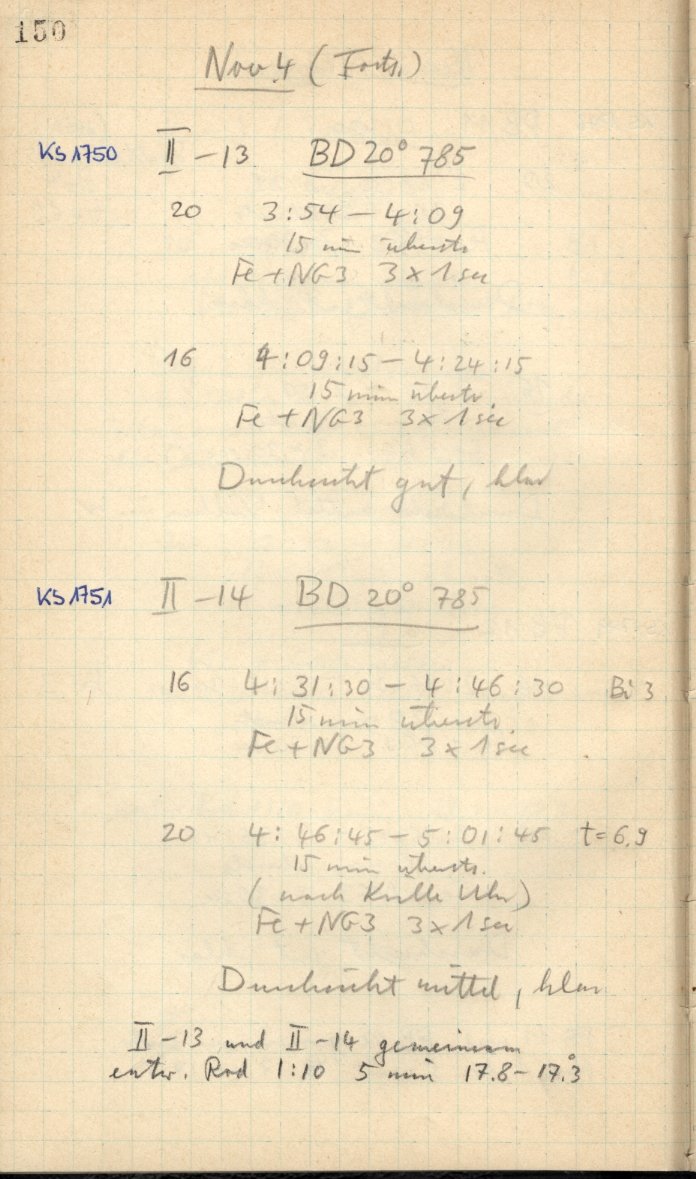 150
Nov 4 (Forts.)
KS 1750 II-13 BD 20° 785
20 3:54 - 4:09
15 min überstr.
Fe + NG3 3 x 1 sec
16 4:09:15 - 4:24:15
15 min überstr.
Fe + NG3 3 x 1 sec
Durchsicht gut, klar
KS 1751 II-14 BD 20° 785
16 4:31:30 - 4:46:30 Bi 3
15 min überstr.
Fe + NG3 3 x 1 sec
20 4:46:45 - 5:01:45 t=6,9
15 min überstr.
(nach Uhr)
Fe + NG3 3 x 1 sec
Durchsicht mittel, klar
II-13 und II-14 gemeinsam
entw. Rod 1:10 5 min 17.8 - 17.3°